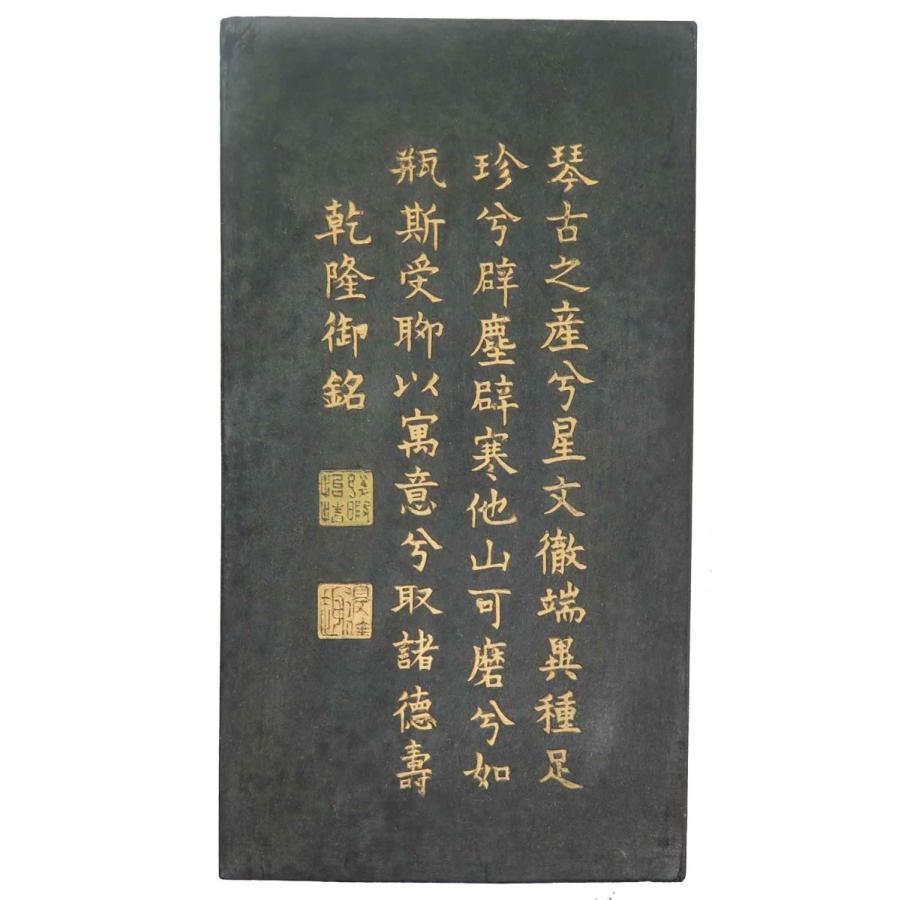 琴古之産兮星文徹端異種足
珍兮辟塵辟寒他山可磨兮如
瓶斯受聊以寓意兮取諸德壽
乾隆御銘